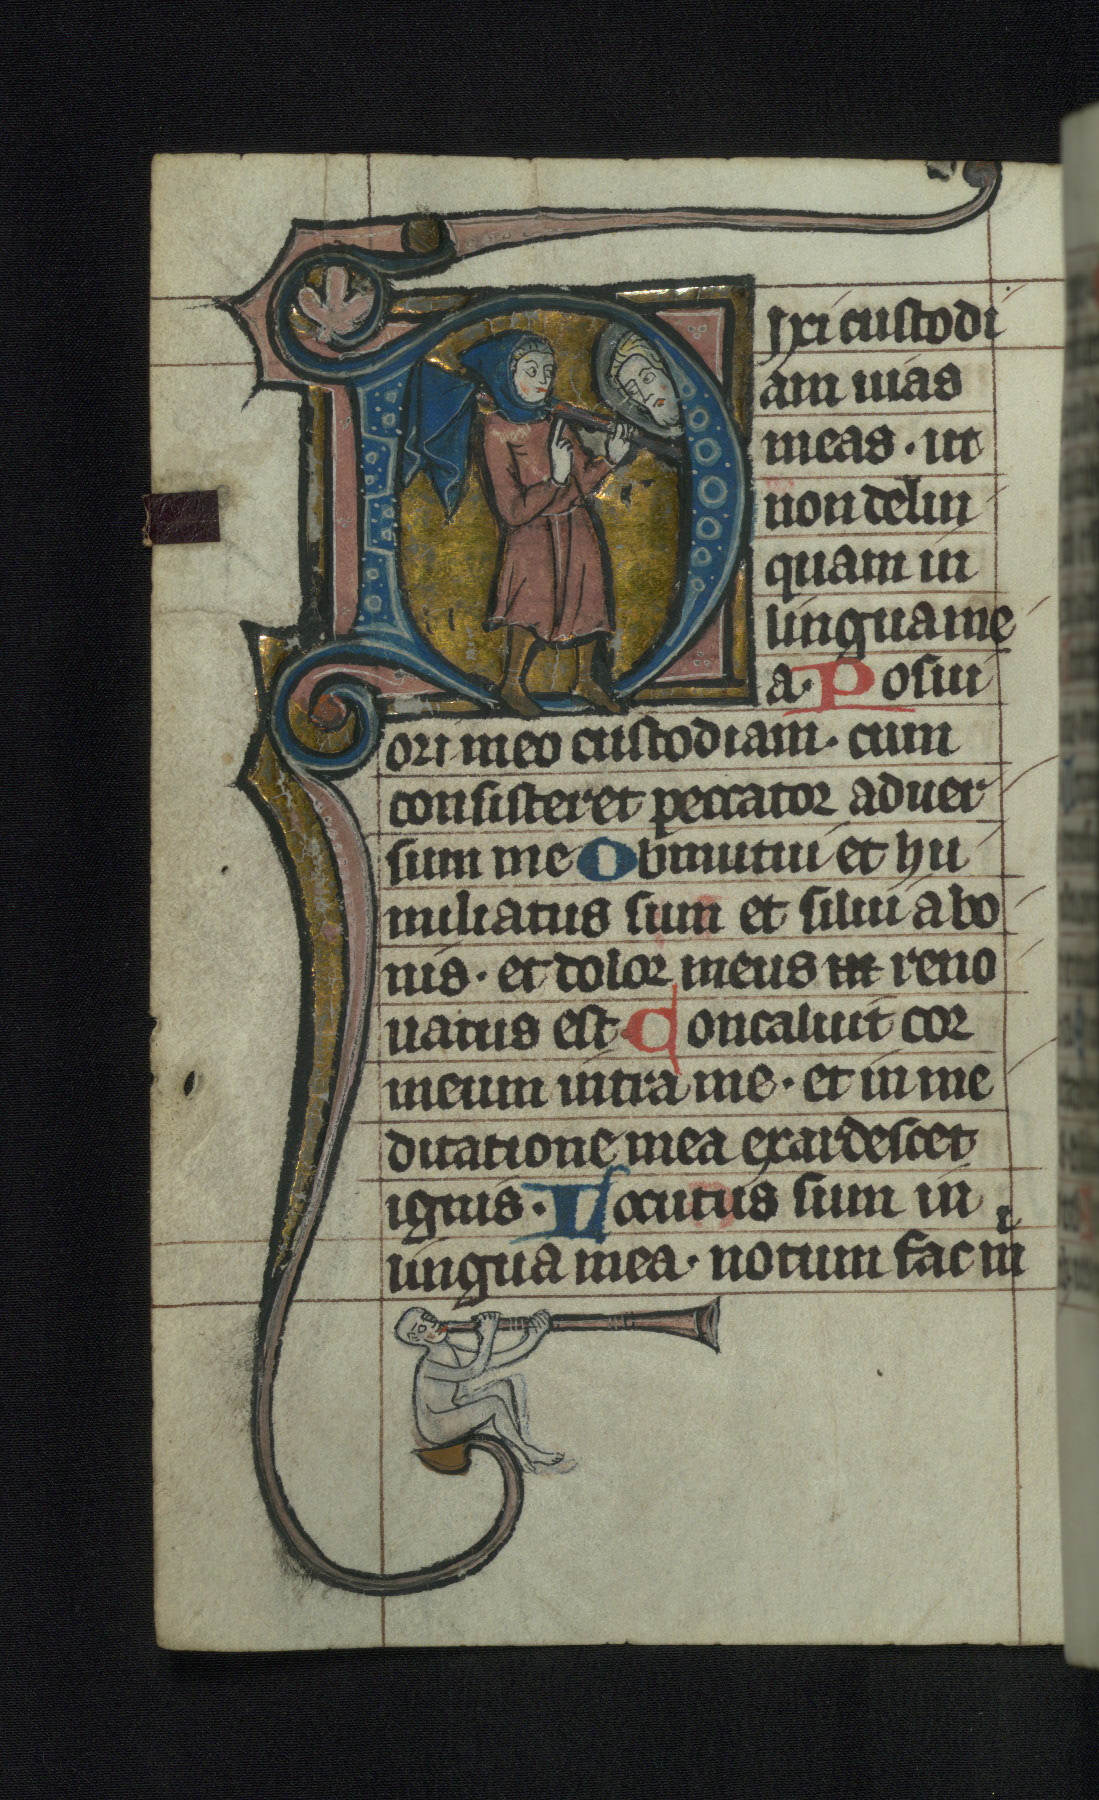 Dixi custodi
am uias
meas · ut
non delin
quam in
lingua me
a · Posui
ori meo custodiam · cum
consisteret peccator aduer
sum me Obmutui et hu
miliatus sum et silui a bo
nis · et dolor meus in reno
uatus est Concaluit cor
meum intra me · et in me
ditatione mea exardescet
ignis · Locutus sum in
lingua mea · notum fac mi